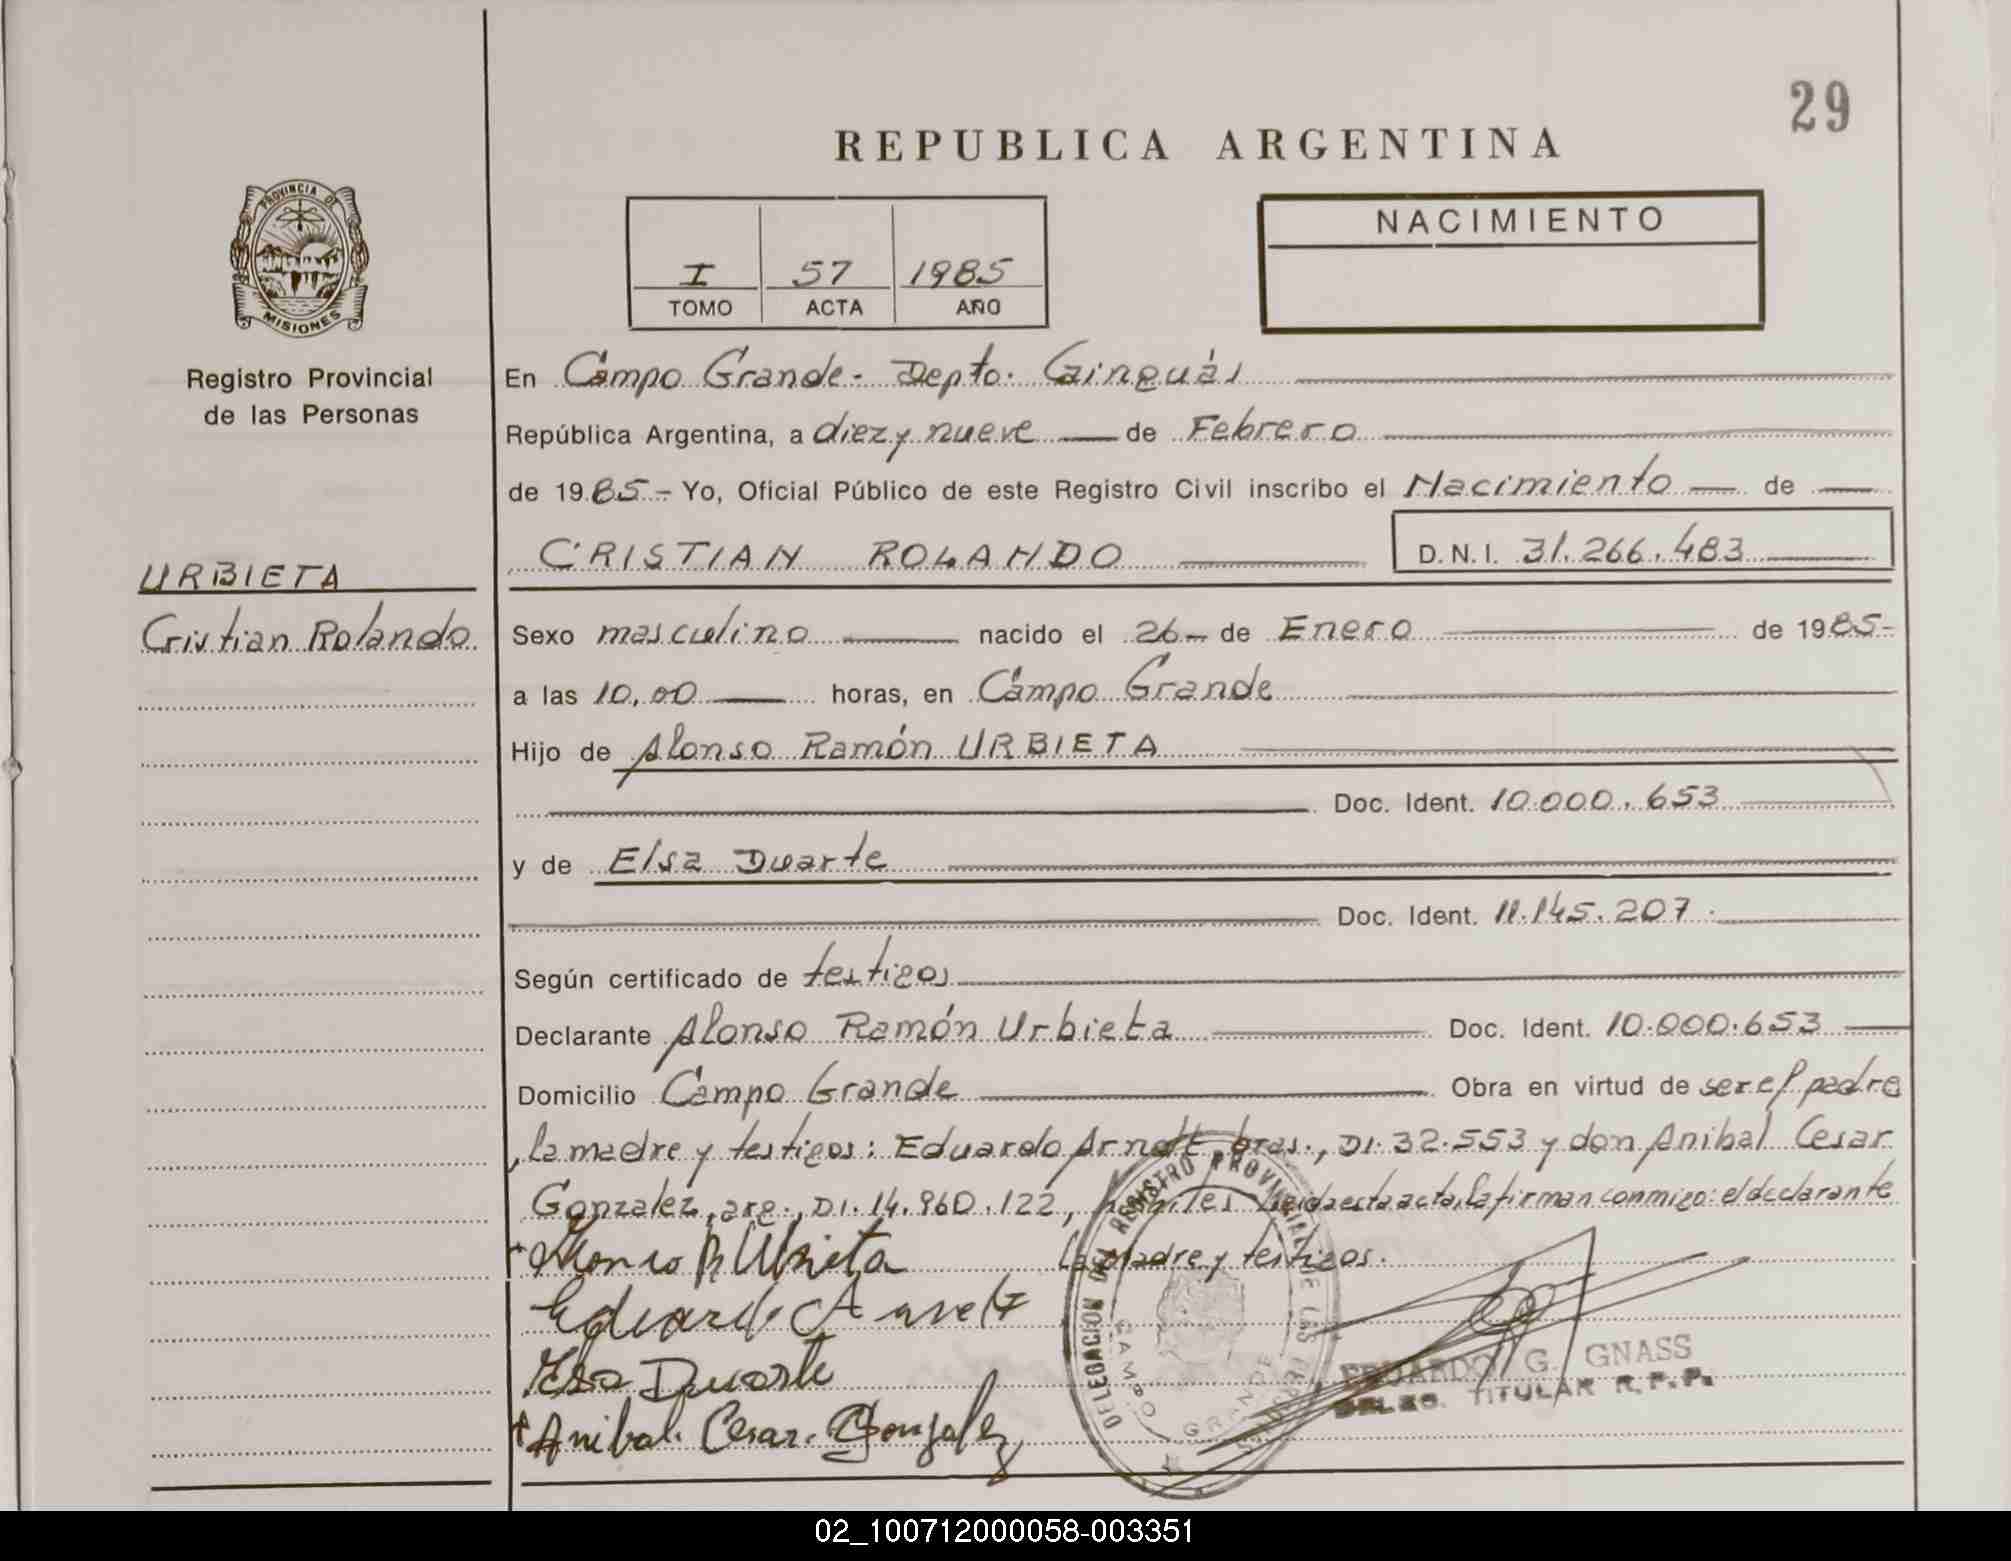 29
REPUBLICA ARGENTINA
PROVINCIA DE
MISIONES
Registro Provincial
de las Personas
I 57 1985
TOMO ACTA AÑO
NACIMIENTO
En Campo Grande - Depto. Cainguás
República Argentina, a diez y nueve de Febrero
de 1985 - Yo, Oficial Público de este Registro Civil inscribo el Nacimiento de
CRISTIAN ROLANDO D.N.I. 31.266.483
URBIETA
Cristian Rolando
Sexo masculino nacido el 26 - de Enero de 1985 -
a las 10,00 horas, en Campo Grande
Hijo de Alonso Ramón URBIETA
Doc. Ident. 10.000.653
y de Elsa Duarte
Doc. Ident. 11.145.207.
Según certificado de testigos
Declarante Alonso Ramón Urbieta Doc. Ident. 10.000.653
Domicilio Campo Grande Obra en virtud de ser el padre
, la madre y testigos: Eduardo Arndt bras., DI. 32.553 y don Anibal Cesar
Gonzalez, arg., DI. 14.860.122, leida esta acta, la firman conmigo: el declarante
la madre y testigos.
Alonso R Urbieta
Eduardo
Elsa Duarte
Anibal Cesar Gonzalez
DELEGACION DEL REGISTRO PROVINCIAL DE LAS PERSONAS
CAMPO GRANDE
EDUARDO G. GNASS
DELEG. TITULAR R.P.P.
02_100712000058-003351